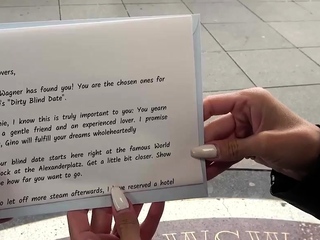 overs,
Wagner has found you! You are the chosen ones for
's "Dirty Blind Date".
ie, I know this is truly important to you: You yearn
a gentle friend and an experienced lover. I promise
, Gina will fulfill your dreams wholeheartedly
our blind date starts here right at the famous World
ock at the Alexanderplatz. Get a little bit closer. Show
e how far you want to go.
o let off more steam afterwards, I've reserved a hotel